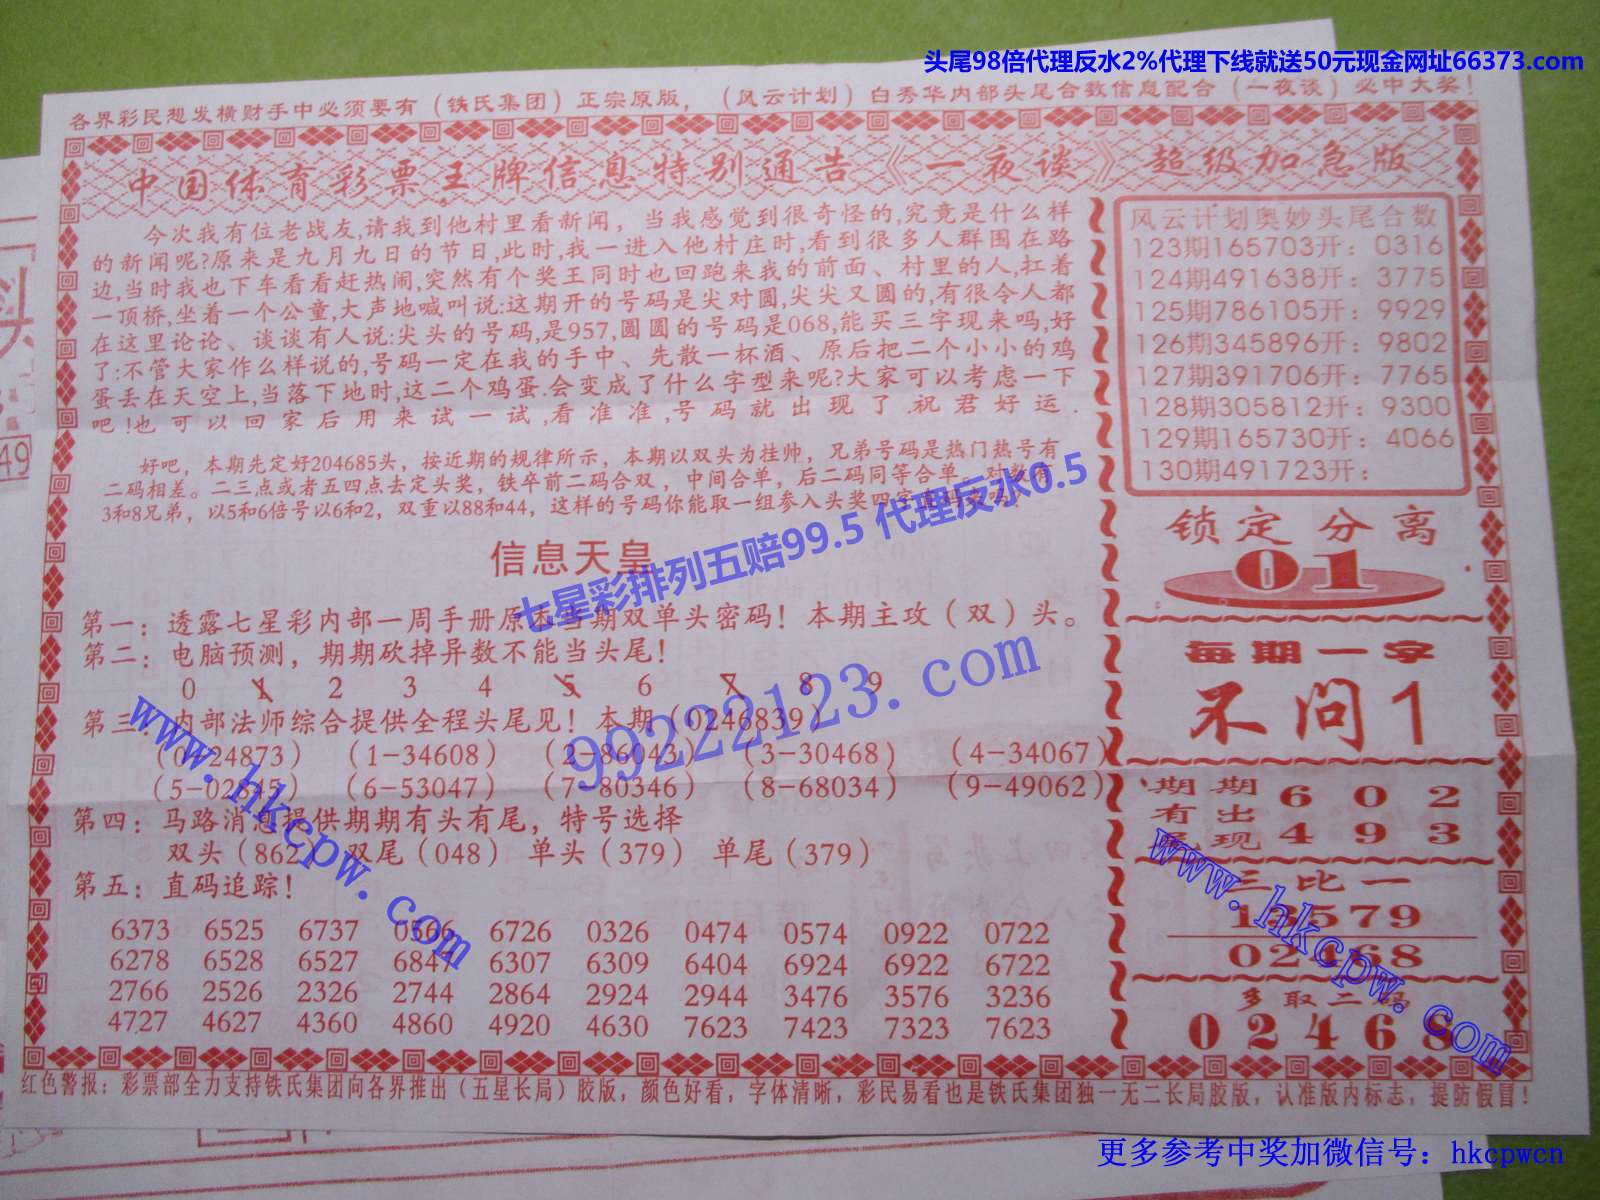 头尾98倍代理反水2%代理下线就送50元现金网址66373.com
各界彩民想发横财手中必须要有（铁氏集团）正宗原版，（风云计划）白秀华内部头尾合数信息配合（一夜谈）必中大奖！
中国体育彩票王牌信息特别通告《一夜谈》超级加急版
今次我有位老战友,请我到他村里看新闻，当我感觉到很奇怪的,究竟是什么样
的新闻呢?原来是九月九日的节日,此时,我一进入他村庄时,看到很多人群围在路
边,当时我也下车看看赶热闹,突然有个奖王同时也回跑来我的前面、村里的人,扛着
一顶桥,坐着一个公童,大声地喊叫说:这期开的号码是尖对圆,尖尖又圆的,有很令人都
在这里论论、谈谈有人说:尖头的号码,是957,圆圆的号码是068,能买三字现来吗,好
了:不管大家作么样说的,号码一定在我的手中、先散一杯酒、原后把二个小小的鸡
蛋丢在天空上,当落下地时,这二个鸡蛋.会变成了什么字型来呢?大家可以考虑一下
吧!也可以回家后用来试一试,看准准,号码就出现了.祝君好运.
好吧，本期先定好204685头，按近期的规律所示，本期以双头为挂帅，兄弟号码是热门热号有
二码相差。二三点或者五四点去定头奖，铁卒前二码合双，中间合单，后二码同等合单，对数有
3和8兄弟，以5和6倍号以6和2，双重以88和44，这样的号码你能取一组参入头奖四字
七星彩排列五赔99.5 代理反水0.5
信息天皇
第一：透露七星彩内部一周手册原本当期双单头密码！本期主攻（双）头。
第二：电脑预测，期期砍掉异数不能当头尾！
0 1 2 3 4 5 6 7 8 9
第三：内部法师综合提供全程头尾见！本期（0246839）
（0-24873）（1-34608）（2-86043）（3-30468）（4-34067）
（5-02845）（6-53047）（7-80346）（8-68034）（9-49062）
第四：马路消息提供期期有头有尾，特号选择
双头（862） 双尾（048） 单头（379） 单尾（379）
第五：直码追踪！
6373 6525 6737 0566 6726 0326 0474 0574 0922 0722
6278 6528 6527 6847 6307 6309 6404 6924 6922 6722
2766 2526 2326 2744 2864 2924 2944 3476 3576 3236
4727 4627 4360 4860 4920 4630 7623 7423 7323 7623
风云计划奥妙头尾合数
123期165703开：0316
124期491638开：3775
125期786105开：9929
126期345896开：9802
127期391706开：7765
128期305812开：9300
129期165730开：4066
130期491723开：
锁定分离
01
每期一字
不问1
期期 602
有出
尾现 493
三比一
13579
02468
多取二码
02468
99222123.com
www.hkcpw.com
www.hkcpw.com
49
红色警报：彩票部全力支持铁氏集团向各界推出（五星长局）胶版，颜色好看，字体清晰，彩民易看也是铁氏集团独一无二长局胶版，认准版内标志，提防假冒！
更多参考中奖加微信号：hkcpwcn